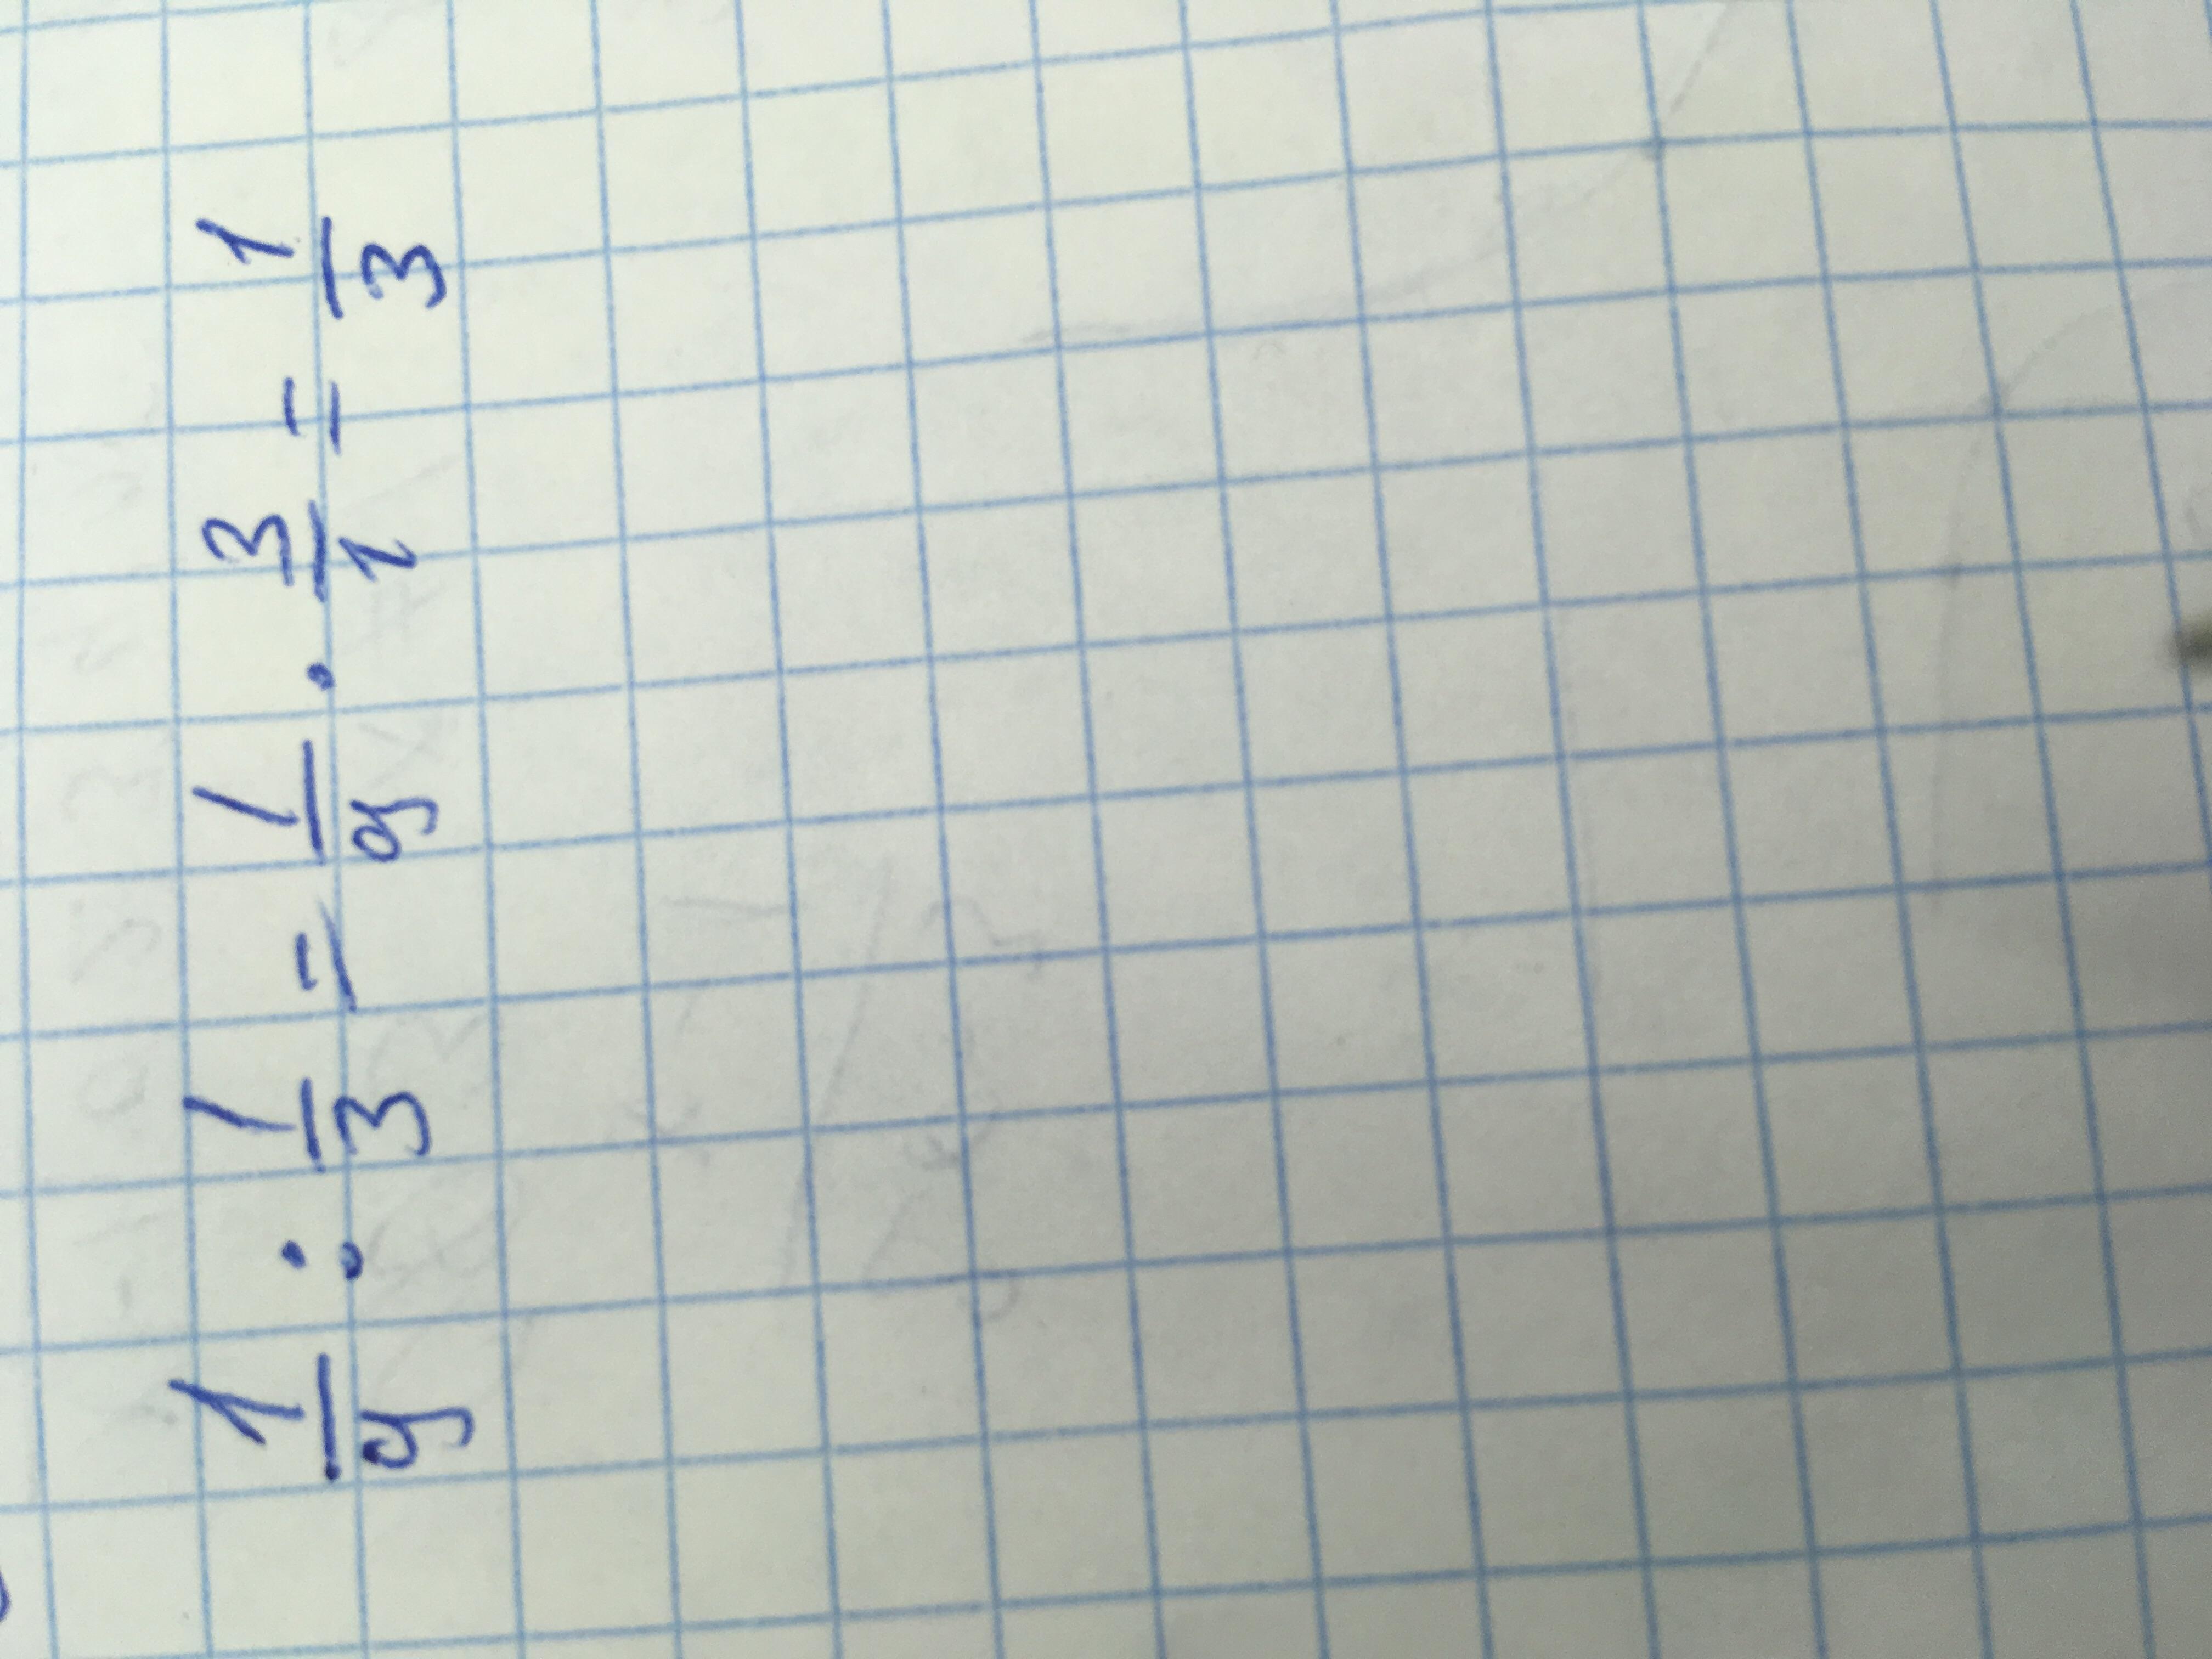 1/9 : 1/3 = 1/9 · 3/1 = 1/3